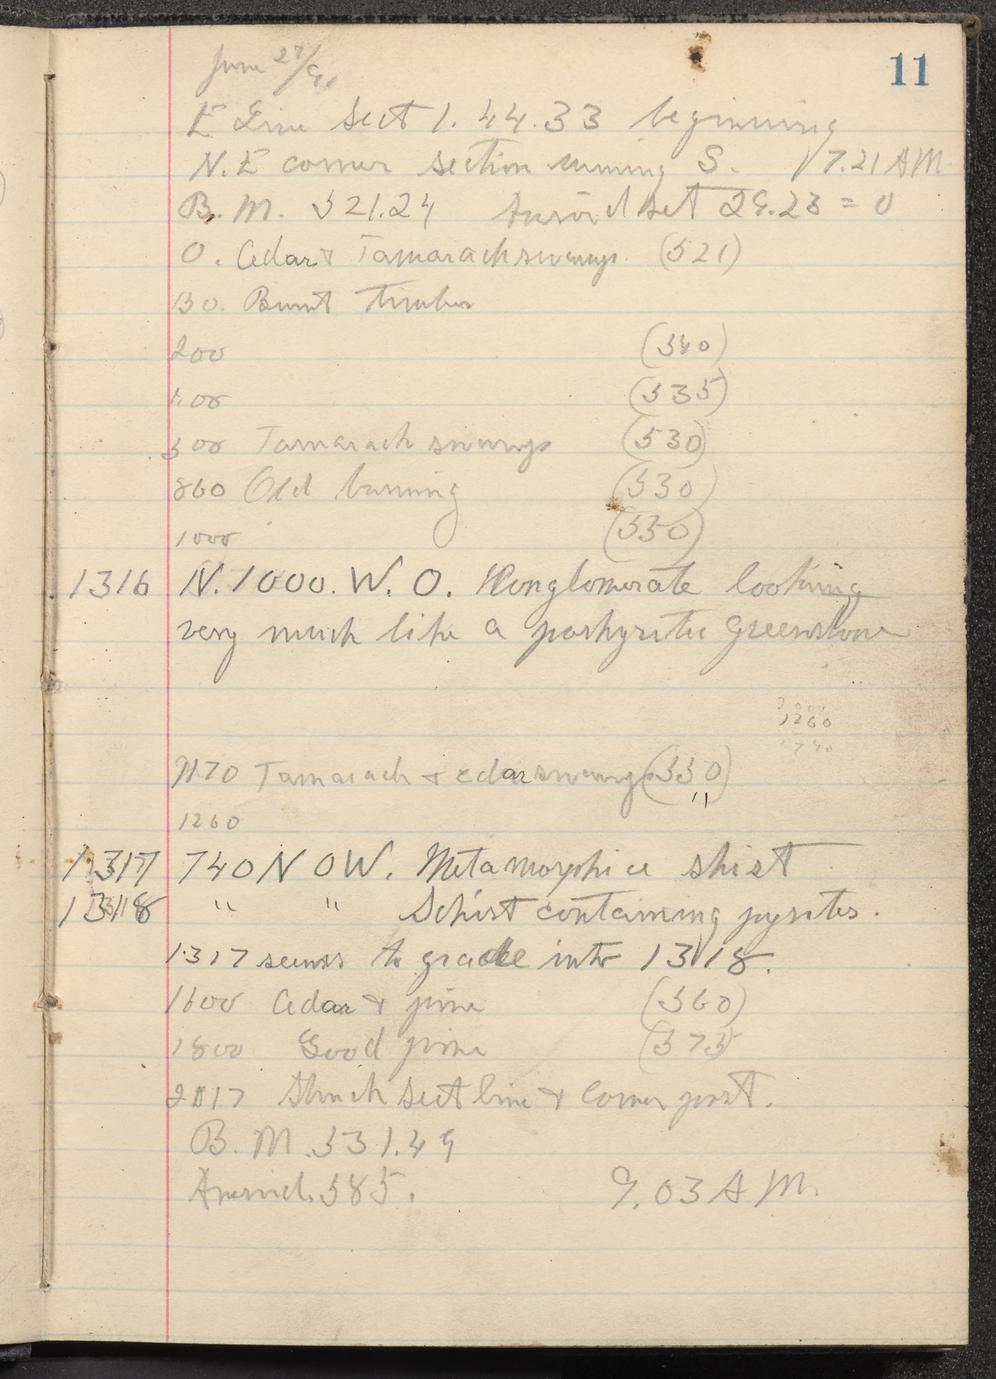 11
June 27/91
E Line Sect 1. 44. 33 beginning
N. E corner section running S. 7.21 AM
B. M. 521.24 Aneroid set 29.23 = 0
0. Cedar & Tamarach swamp. (521)
130. Burnt Timber
200 (540)
400 (535)
500 Tamarach swamp (530)
860 Old burning (530)
1000 (550)
1316 N. 1000. W. O. Konglomerate looking
very much like a porhyritic greenstone
1260
740
1170 Tamarach & cedar swamp (550)
1260
1317 740 N O W. Metamorphice shist
1318 " " Schist containing pyrites.
1317 seems to grade into 1318.
1600 Cedar & pine (560)
1800 Good pine (575)
2017 Struck Sect line & Corner post.
B. M. 531.49
Aneroid. 585. 9.03 A M.